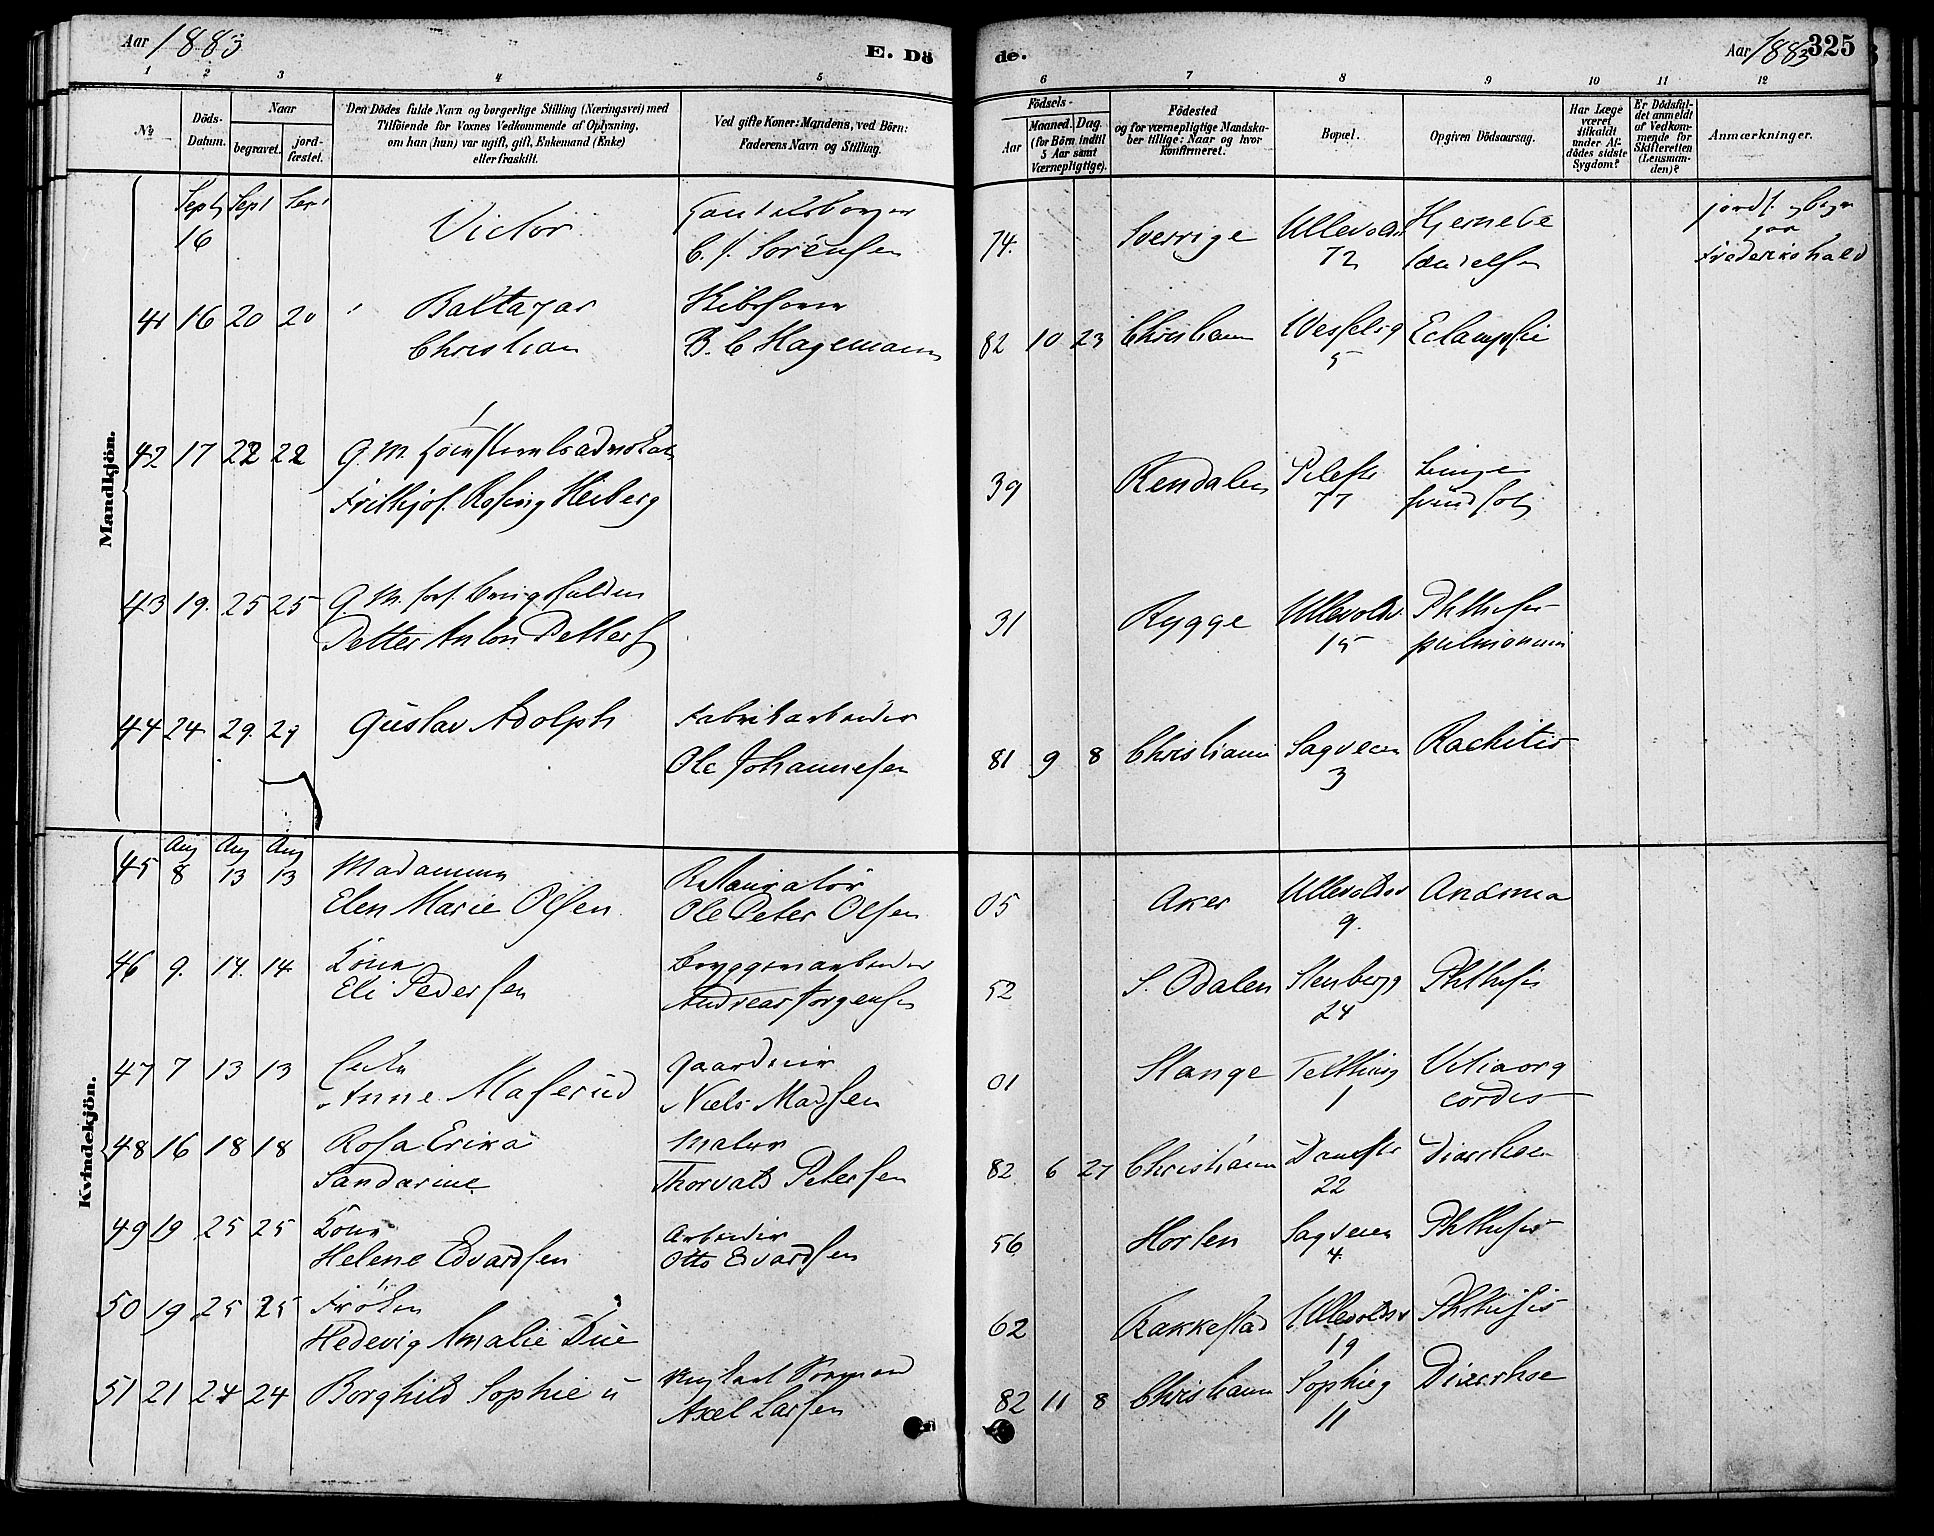 Aar 1883
E. Dö
de.
Aar 1883 325
1 2 3 4 5 6 7 8 9 10 11 12
No
Döds-
Datum.
Naar
begravet.
jord-
fæstet.
Den Dödes fulde Navn og borgerlige Stilling (Næringsvei) med
Tilföiende for Voxnes Vedkommende af Oplysning,
om han (hun) var ugift, gift, Enkemand (Enke)
eller fraskilt.
Ved gifte Koner: Mandens, ved Börn:
Faderens Navn og Stilling.
Födsels-
Aar
Maaned. Dag.
(for Börn indtil
5 Aar samt
Værnepligtige).
Födested
og for værnepligtige Mandska-
ber tillige: Naar og hvor
konfirmeret.
Bopæl.
Opgiven Dödsaarsag.
Har Læge
været
tilkaldt
under Af-
dödes sidste
Sygdom?
Er Dödsfal-
det anmeldt
af Vedkom-
mende for
Skifteretten
(Lensman-
den)?
Anmærkninger.
Mandkjön.
Sept Sept
16 Victor
C. J. Sörensen
74. Sverrige Ullevoldsv Hjernebe
72
jordf. og begr
paa
Frederikshald
41 16 20 20 Baltazar
Christian
B. C Hagemann
82 10 23 Christiania Wesselsg Eclampsie
5
42 17 22 22 G. M.
Frithjof Rosing Heiberg
39 Rendalen Pilestr Lunge
77 svindsot
43 19. 25 25 G. M.
Petter Anton Petters
31 Rygge Ullevoldsv Phthisis
15 pulmonum
44 24 29. 29 Gustav Adolph Fabrikarbeider
Ole Johannesen
81 9 8 Christiania Sagveien Rachitis
3
Kvindekjön.
Aug Aug Aug
45 8 13 13 Madamme Restauratör
Elen Marie Olsen Ole Peter Olsen
05 Aker Ullevoldsv Anæmia
9.
46 9. 14. 14. Kone Bryggeriarbeider
Eli Pedersen Andreas Jörgensen
52 S. Odalen Stenbergg Phthisis
24
47 7 13 13 Enke Gaardeier
Anne Maserud Niels Madsen
01 Stange Telthusg Vitium org
1 cordis
48 16 18 18 Rosa Erika Maler
Sandarine Thorvald Petersen
82 6 27 Christiania Damstr Diarrhoe
22
49 19 25 25 Kone Arbeider
Helene Edvardsen Otto Edvardsen
56 Horten Sagveien Phthisis
4.
50 19 25 25 Fröken
Hedevig Amalie Due
62 Rakkestad Ullevoldsv Phthisis
19
51 21 24 24 Borghild Sophie u Formand
Axel Larsen
82 11 8 Christiania Sophieg Diarrhoe
11